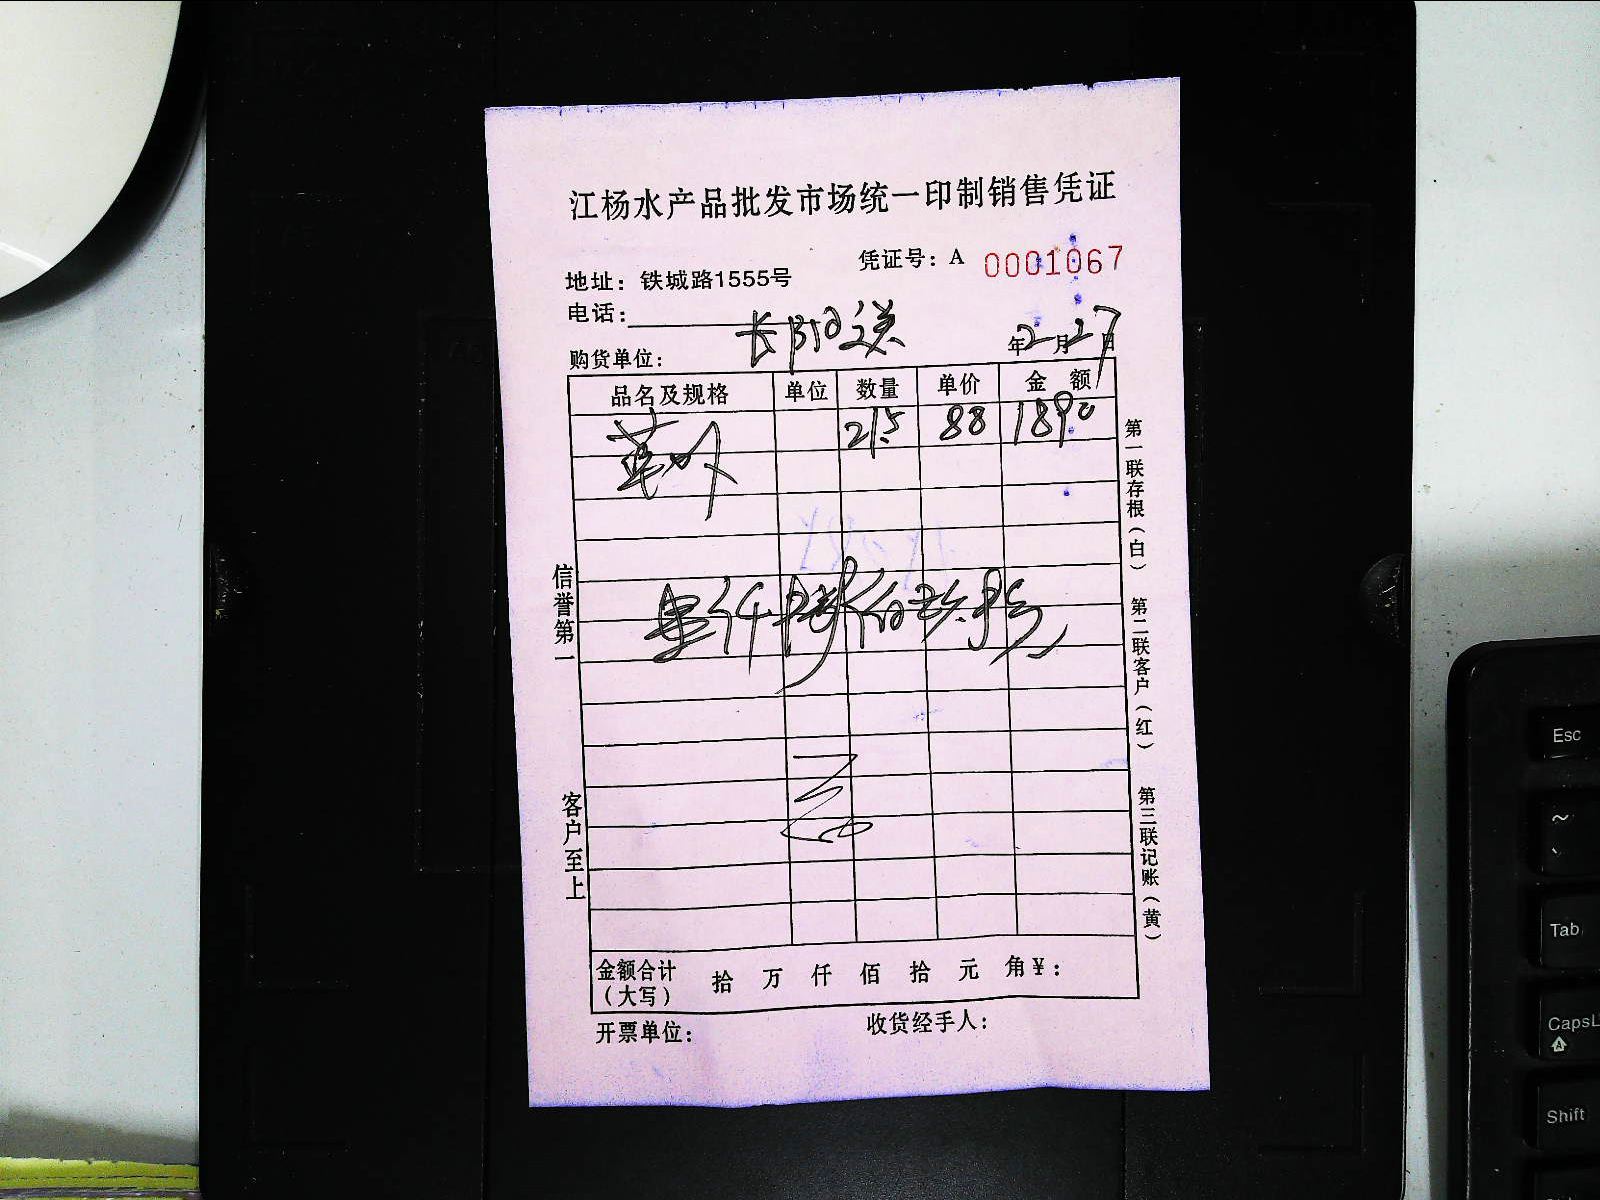 江杨水产品批发市场统一印制销售凭证
凭证号：A 0001067
地址：铁城路1555号
电话：
购货单位：
年2月27日
品名及规格 单位 数量 单价 金额
21.5 88 1890
第一联存根（白）
第二联客户（红）
第三联记账（黄）
信誉第一
客户至上
壹仟捌佰玖拾元
金额合计（大写） 拾 万 仟 佰 拾 元 角￥：
开票单位： 收货经手人：
Esc
~
Tab
CapsL
Shift